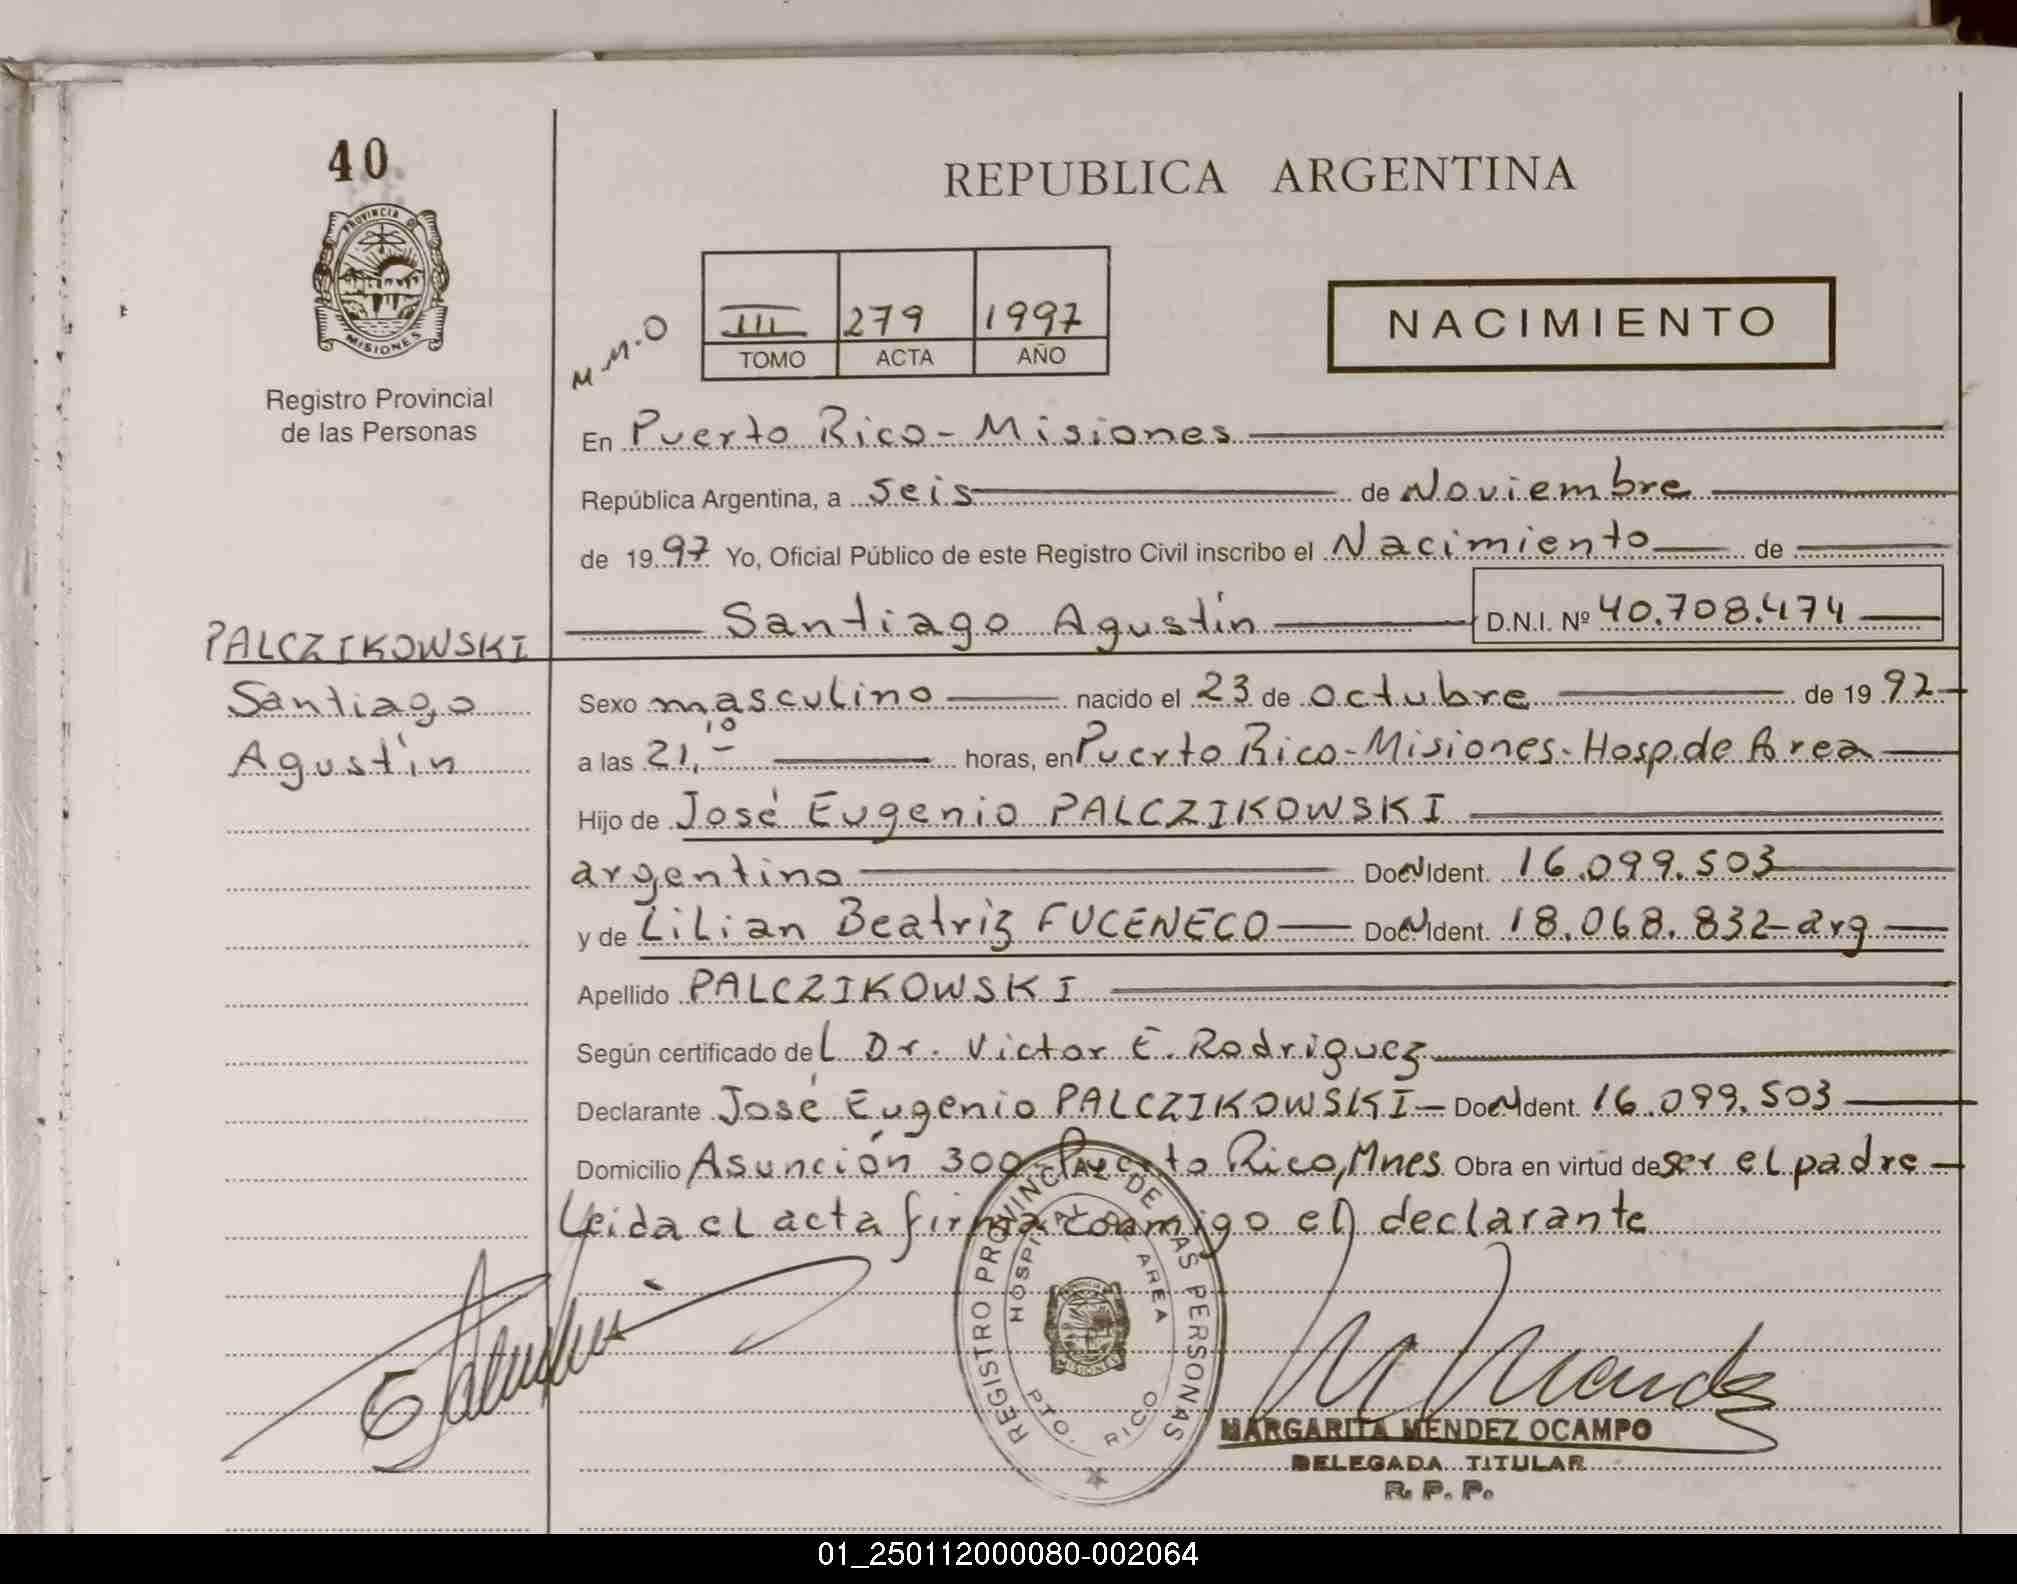 40
PROVINCIA D
MISIONES
Registro Provincial
de las Personas
REPUBLICA ARGENTINA
M.M.O
III 279 1997
TOMO ACTA AÑO
NACIMIENTO
En Puerto Rico - Misiones
República Argentina, a seis de Noviembre
de 1997 Yo, Oficial Público de este Registro Civil inscribo el Nacimiento de
Santiago Agustín D.N.I. Nº 40.708.474
PALCZIKOWSKI
Santiago
Agustín
Sexo masculino nacido el 23 de octubre de 1992
a las 21,10 horas, en Puerto Rico - Misiones - Hosp. de Area
Hijo de José Eugenio PALCZIKOWSKI
argentino Doc N Ident. 16.099.503
y de Lilian Beatriz FUCENECO Doc N Ident. 18.068.832 - arg
Apellido PALCZIKOWSKI
Según certificado del Dr. Victor E. Rodriguez
Declarante José Eugenio PALCZIKOWSKI - Doc N Ident. 16.099.503
Domicilio Asunción 300 - Puerto Rico, Mnes. Obra en virtud de ser el padre
Leida el acta firma conmigo el declarante
REGISTRO PROVINCIAL DE LAS PERSONAS
HOSPITAL DE AREA
PTO. RICO
MISIONES
MARGARITA MENDEZ OCAMPO
DELEGADA TITULAR
R. P. P.
01_250112000080-002064